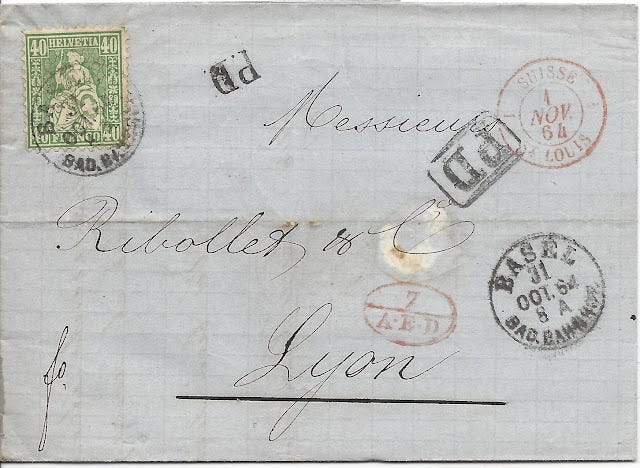 40 HELVETIA 40
40 FRANCO 40
BAD. BA
P.D.
SUISSE
1
NOV.
64
ST LOUIS
Messieurs
P.D.
Ribollet & Cie
BASEL
31
OCT. 64
8 A
BAD. BAHNHOF.
7
A.E.D
fo.
Lyon